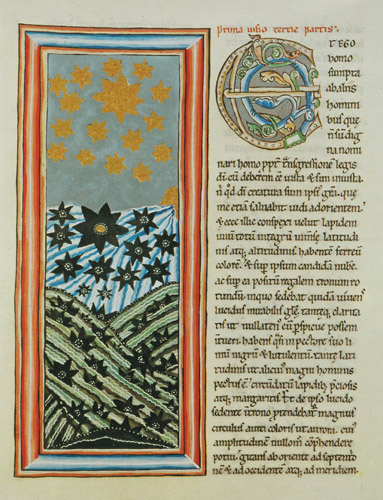 Prima visio tercie partis.
ET EGO
homo
sumpta
ab aliis
homini
bus que
n̄ sū dig
na nomi
nari homo ꝓpt̄ t̄nsgressionē legis
dī cū deberem eē iusta & sum iniusta.
nisi qd̄ dī creatura sum ipsī grā. que
me etiā saluabit. uidi ad orientem.
& ecce illic conspexi uelut lapidem
unū totū integrū inmēse latitudi
nis atq; altitudinis habentē ferreū
colorē. & sup ipsum candidā nubē.
ac sup eā positū regalem tronum ro
tundū. in quo sedebat quidā uiuens
lucidus mirabilis glīę. tantęq; clarita
tis ut nullatenꝰ eū ꝑspicue possem
intueri. habens q̄si in pectore suo li
mū nigrū & lutulentū. tantę lati
tudinis ut alicuiꝰ magni hominis
pectus ē. circūdatū lapidib; p̄ciosis
atq; margaritis. Et de ipso lucido
sedente in trono. p̄tendebat̄ magnus
circulus aurei coloris ut aurora. cuiꝰ
amplitudinē nullom̊ cōp̄hendere
potui. girans ab oriente ad septentrio
nē. & ad occidentē. atq; ad meridiem.